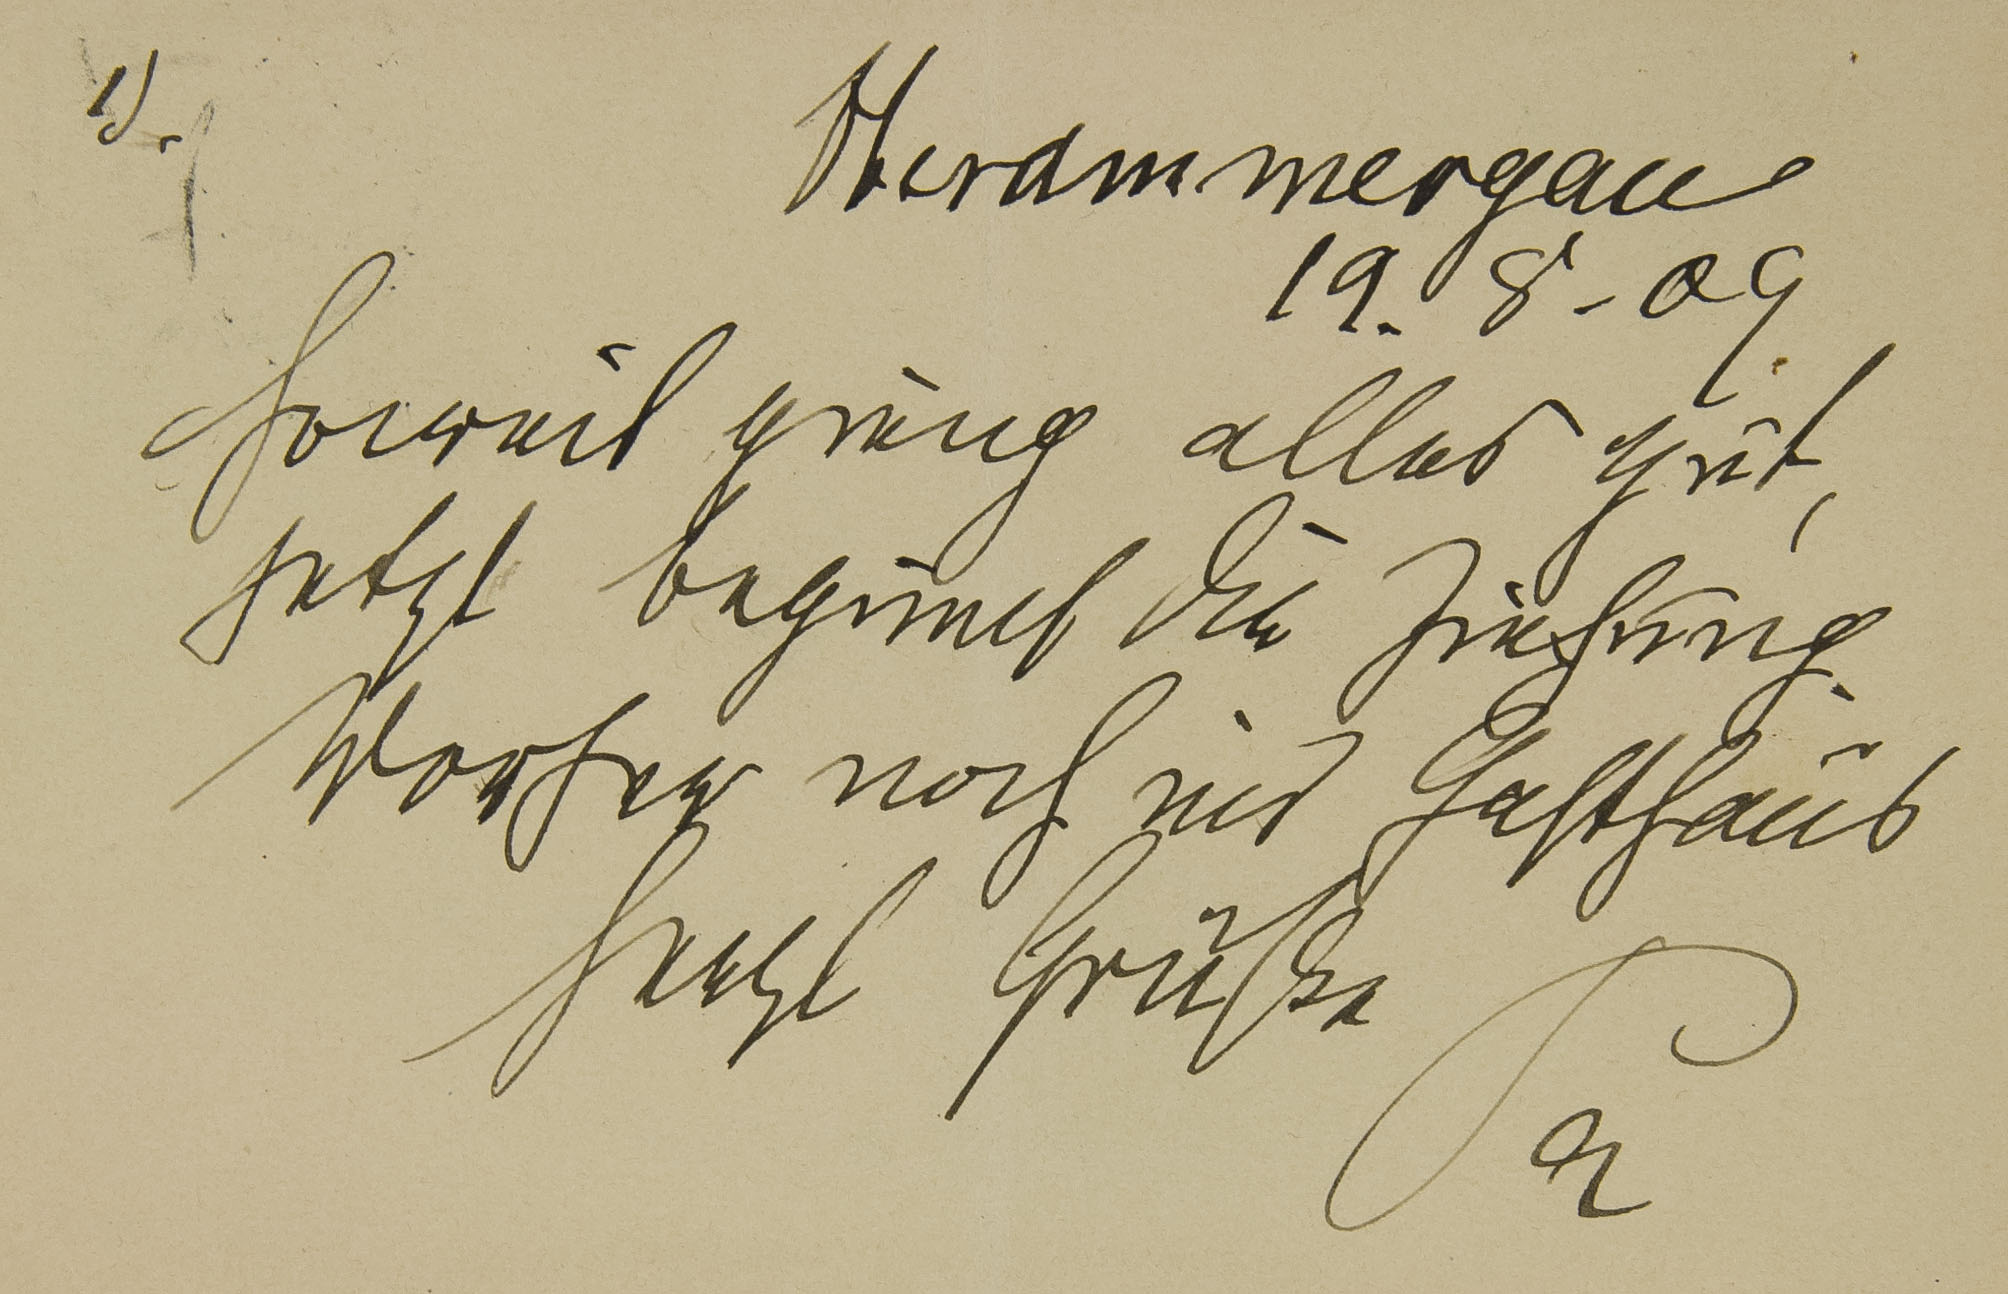 1).
Oberammergau
19. 8. 09
Soweit ging alles gut,
jetzt beginnt die Ziehung
Vorher noch ins Gasthaus
Herzl Grüße
P